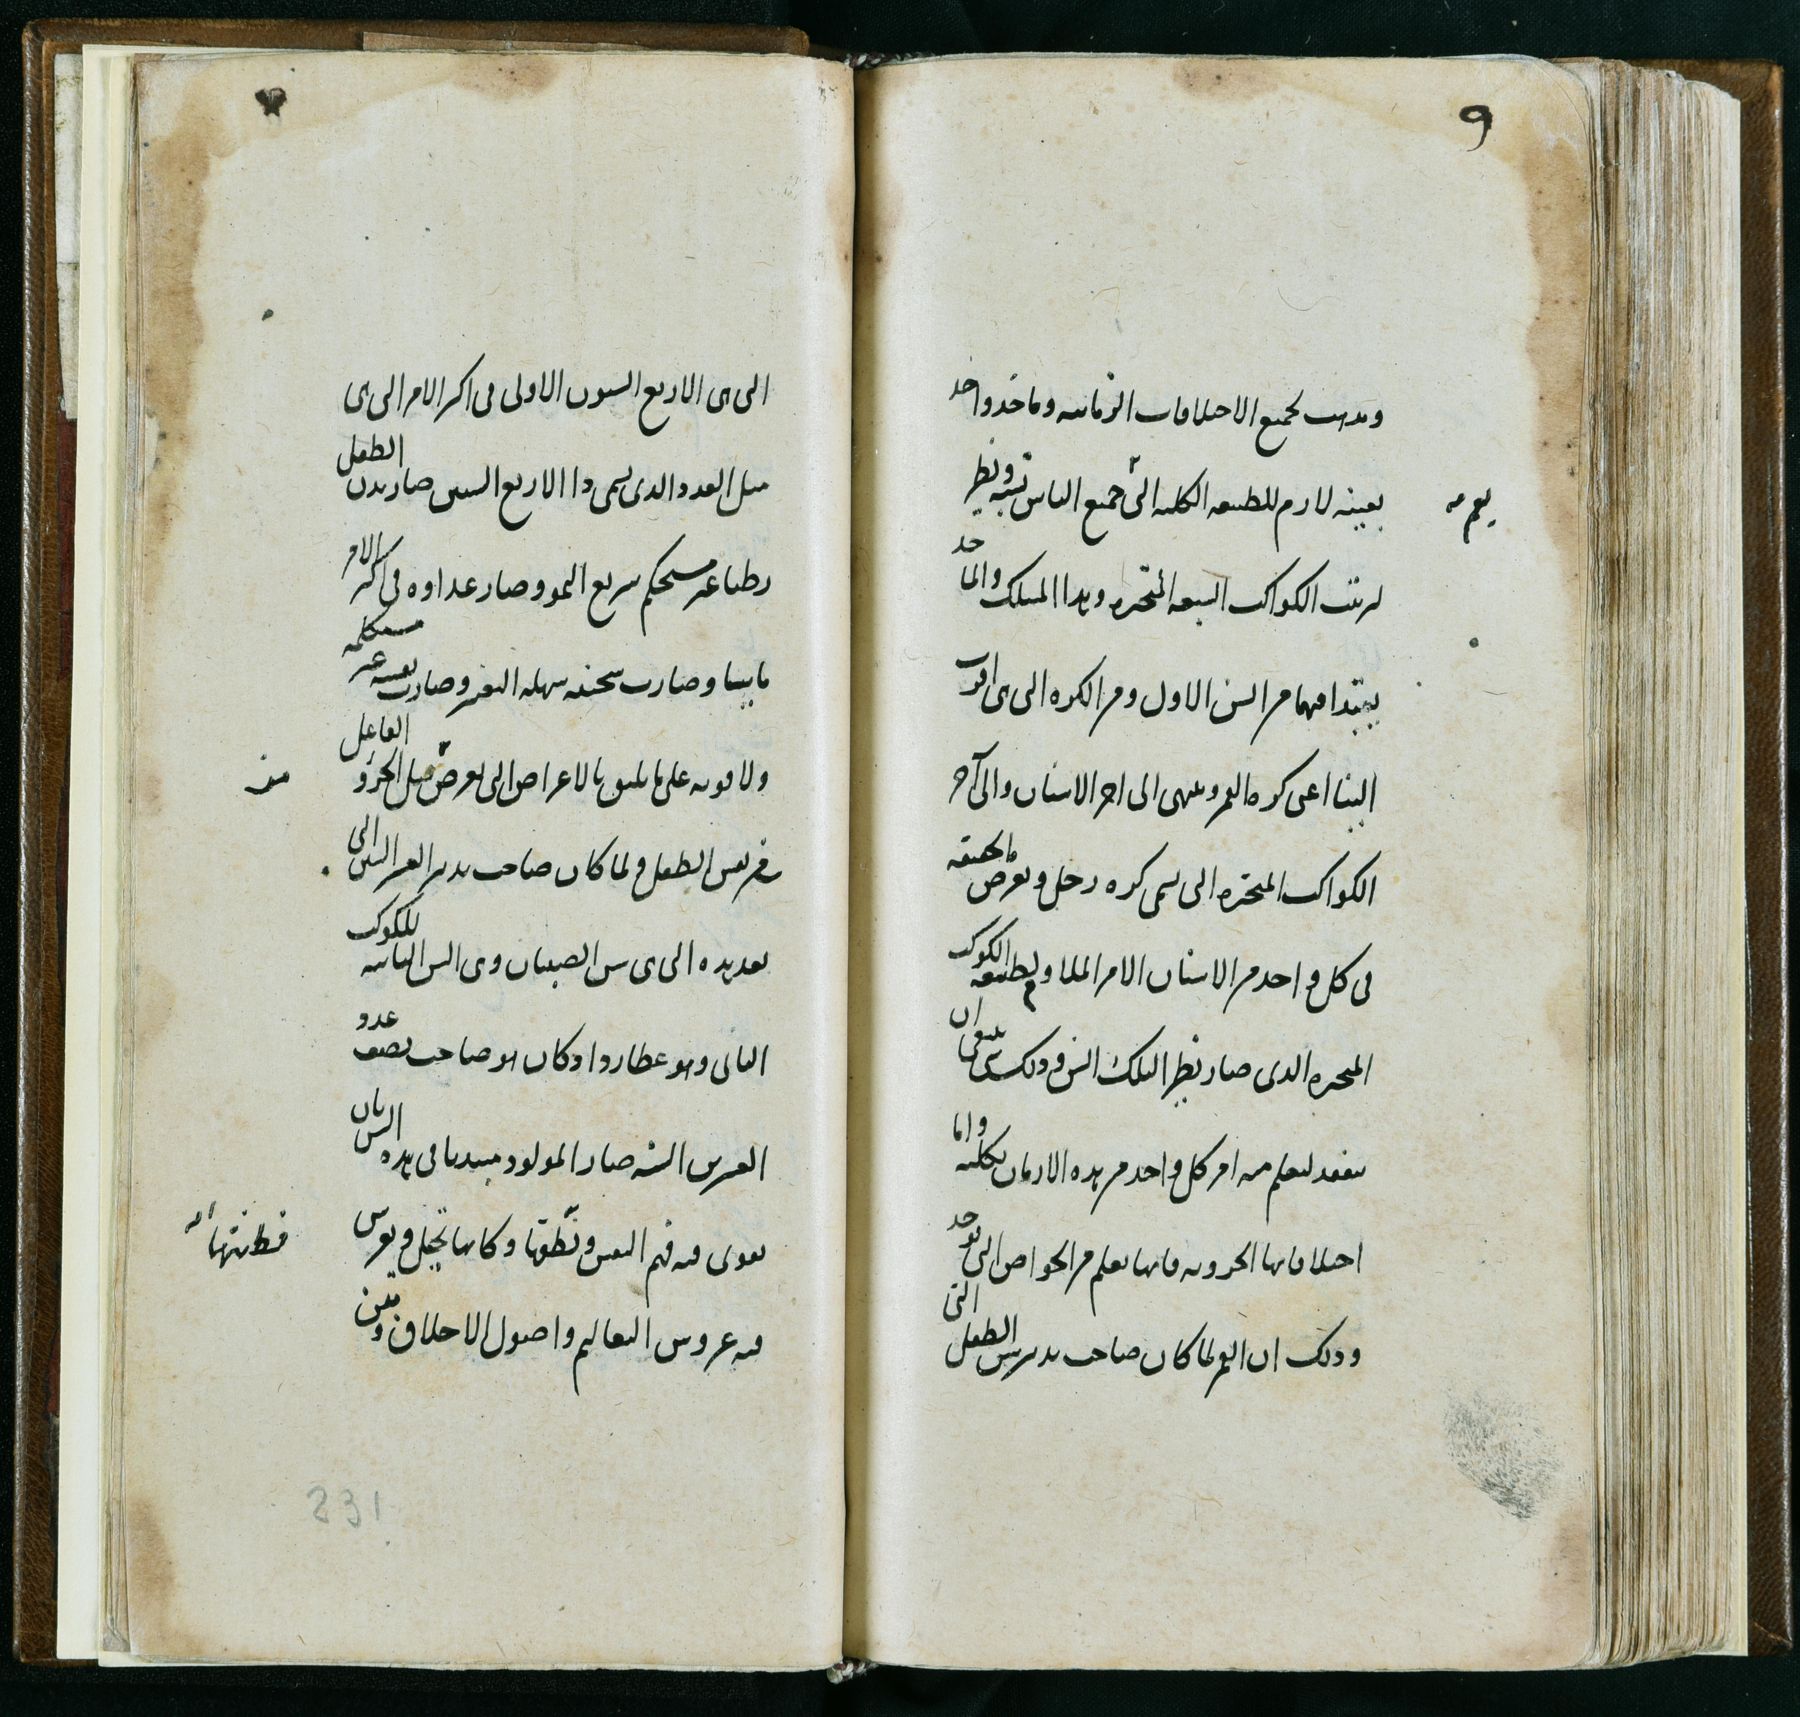 9
ومدهب لجميع الاختلافات الزمانيه وماخذ واحد
بعينه لازم للطبيعه الكليه التى جميع الناس تشبه ونظير
يعم
لرتبت الكواكب السبعه المتحيره وهذا المسلك والماخذ
يبتدا فيهما من السن الاول ومن الكره التى هى اقرب
الينا اعنى كره القمر وينتهى الى اخر الاسنان والى آخر
الكواكب المتحيره التى تسمى كره زحل وتعرض بالحقيقه
فى كل واحد من الاسنان الامر الملاوم لطبيعه الكوكب
المتحيره الذى صار نظير التلك السن وذلك شى ينبغى ان
نتفقد لنعلم منه امر كل واحد من هذه الازمان بكليه واما
اختلافاتها الجزويه فانها تعلم من الخواص التى توجد
وذلك ان القمر لما كان صاحب تدبير سن الطفل التى
التى هى الاربع السنون الاولى فى اكثر الامر التى هى
مثل العدد الذى يسمى ذا الاربع السنين صار بدن الطفل
رطبا غير مستحكم سريع النمو وصار غذاوه فى اكثر الامر
مابيا وصارت سحنته سهله التغير وصارت نفسه غير مستكمله
ولا قويه على ما يليق بالاعراض التى تعرض من قبل الجزو الفاعل
من
فى نفس الطفل ولما كان صاحب تدبير العشر السنين التى
بعد هذه التى هى سن الصبيان وهى السن الثانيه للكوكب
الثانى وهو عطارد اذ كان هو صاحب نصف عدد
العشرين السنه صار المولود مبتديا فى هذه السن بان
يقوى فيه فهم النفس ونطقها وكانها تخيل ويغرس
فطنتها
فيه غروس التعاليم واصول الاخلاق وتبين
231